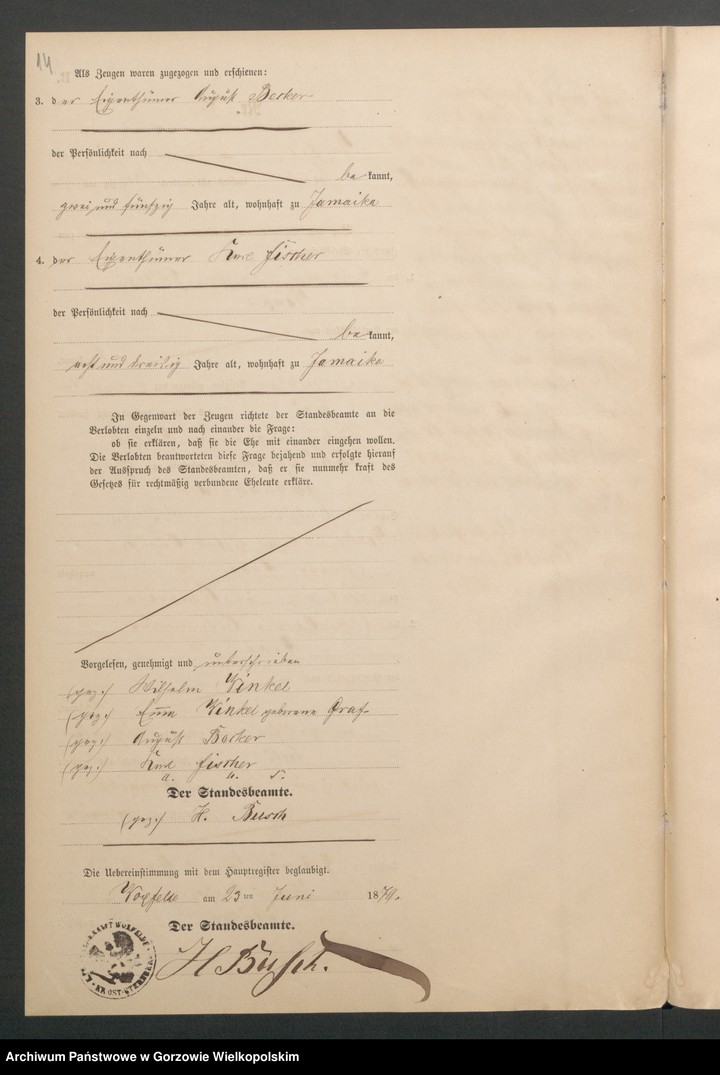 14
Als Zeugen waren zugezogen und erschienen:
3. der Eigenthümer August Becker
der Persönlichkeit nach
bekannt,
zwei und fünfzig Jahre alt, wohnhaft zu Jamaika
4. der Eigenthümer Karl Fischer
der Persönlichkeit nach
bekannt,
acht und dreißig Jahre alt, wohnhaft zu Jamaika
In Gegenwart der Zeugen richtete der Standesbeamte an die
Verlobten einzeln und nach einander die Frage:
ob sie erklären, daß sie die Ehe mit einander eingehen wollen.
Die Verlobten beantworteten diese Frage bejahend und erfolgte hierauf
der Ausspruch des Standesbeamten, daß er sie nunmehr kraft des
Gesetzes für rechtmäßig verbundene Eheleute erkläre.
Vorgelesen, genehmigt und unterschrieben
(gez.) Wilhelm Kinkel
(gez.) Emma Kinkel geborene Graf
(gez.) August Becker
(gez.) Karl Fischer
a. u. s.
Der Standesbeamte.
(gez.) H. Busch
Die Uebereinstimmung mit dem Hauptregister beglaubigt.
Woxfelde am 23 ten Juni 1879.
Der Standesbeamte.
H Busch.
WOXFELDE
KR. OST-STERNBERG
Archiwum Państwowe w Gorzowie Wielkopolskim